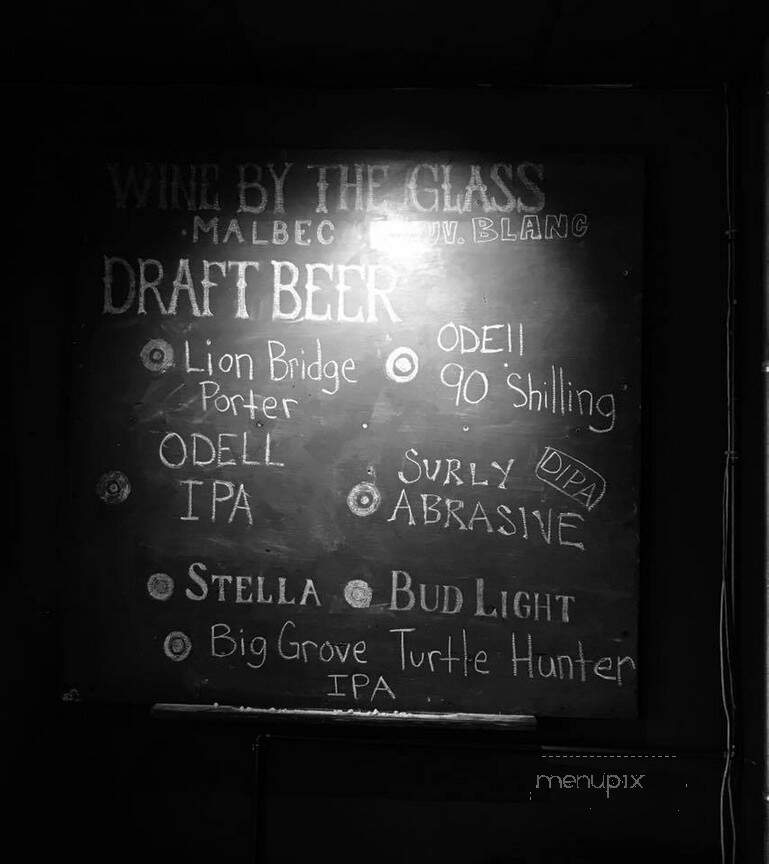 WINE BY THE GLASS
MALBEC UV. BLANC
DRAFT BEER
Lion Bridge
Porter
ODEll
90 Shilling
ODELL
IPA
SURLY DIPA
ABRASIVE
STELLA BUD LIGHT
Big Grove Turtle Hunter
IPA
menupix